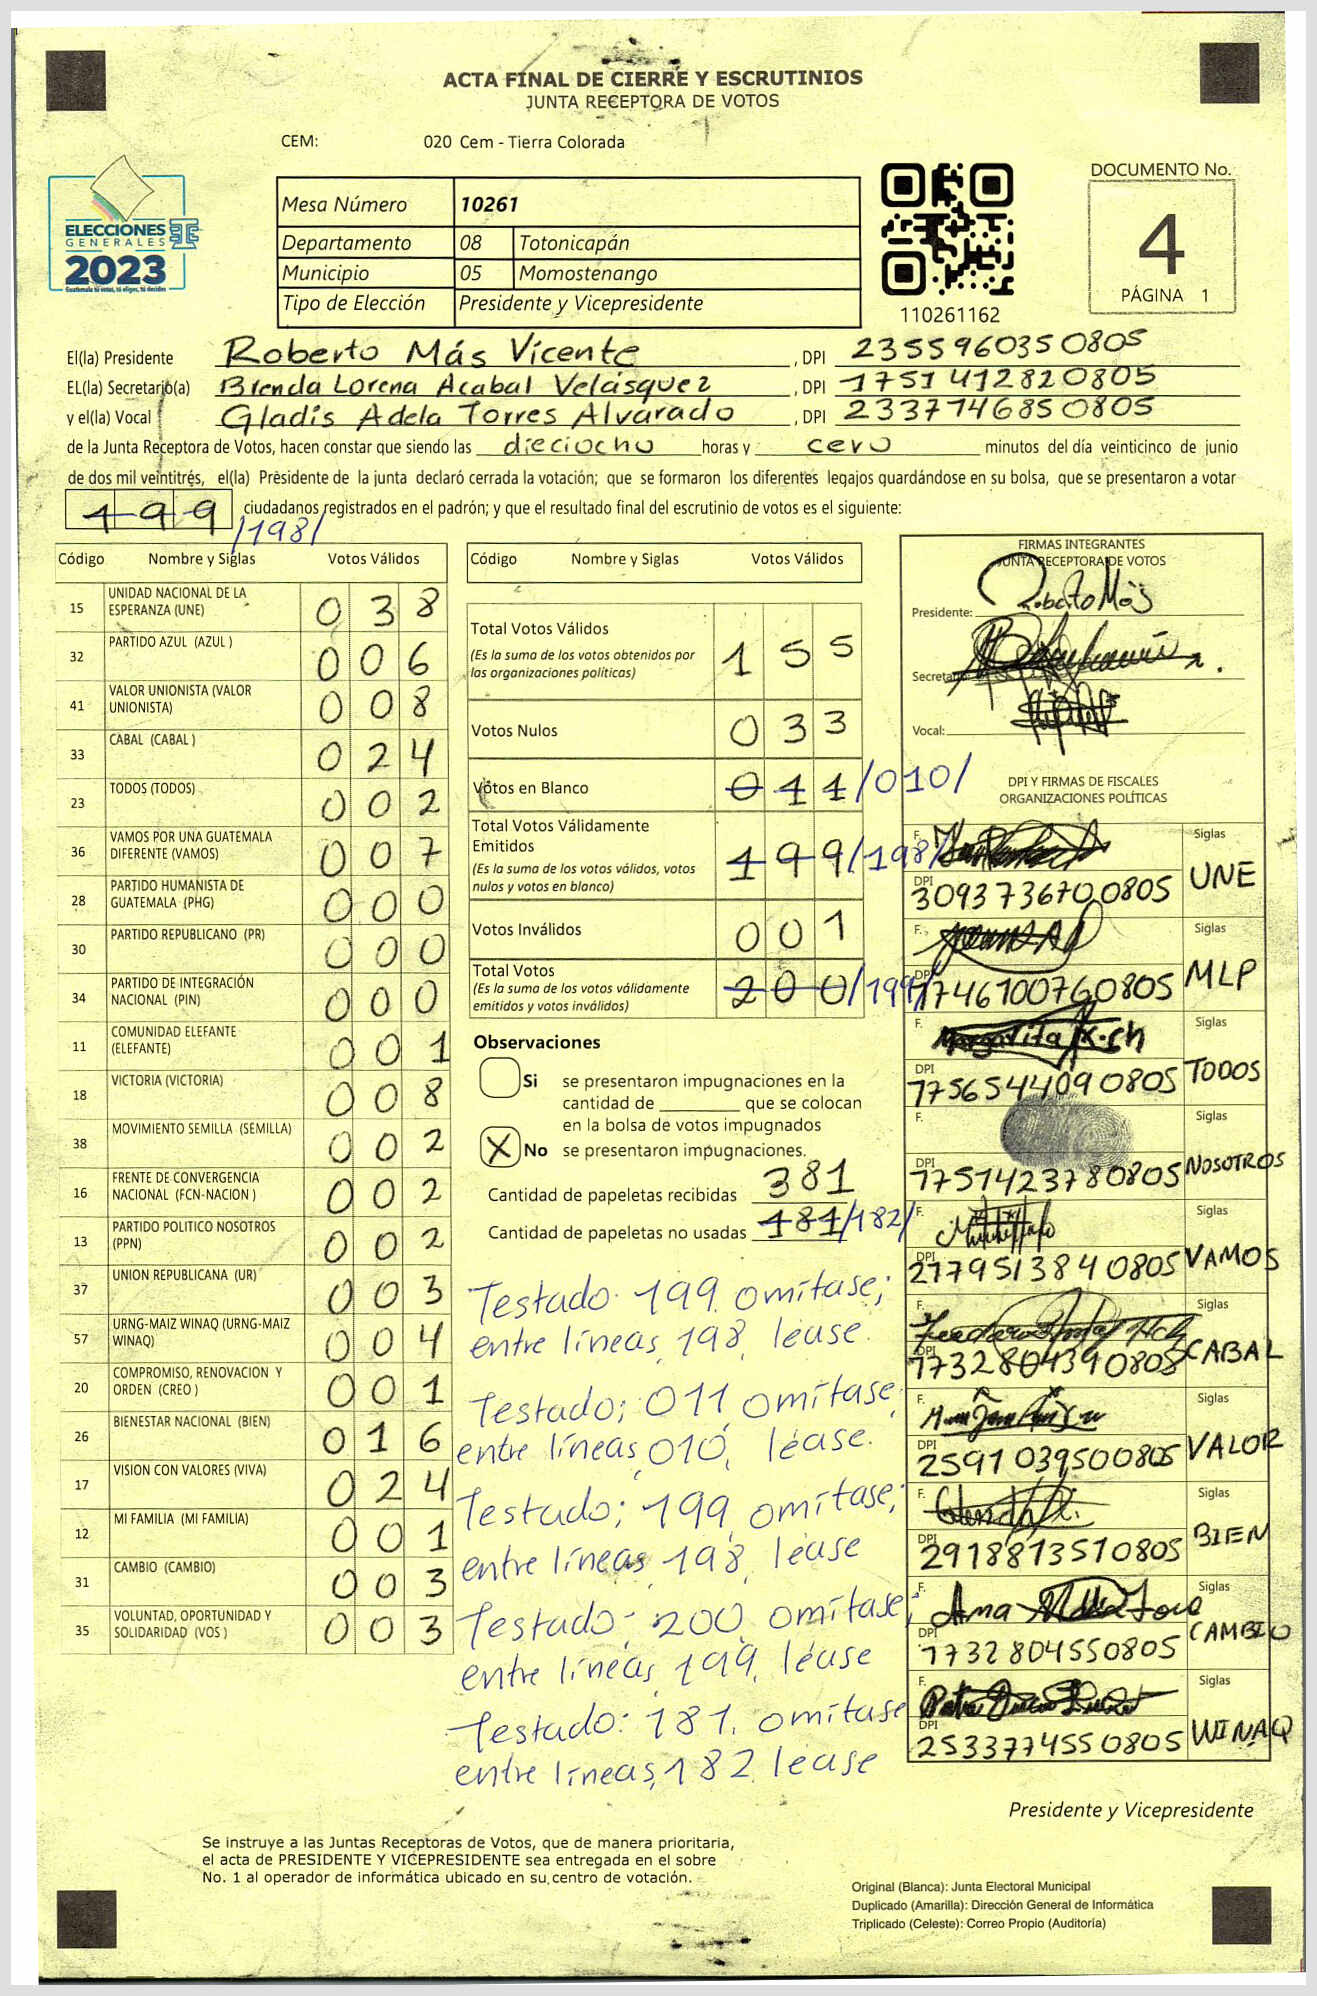 ACTA FINAL DE CIERRE Y ESCRUTINIOS
JUNTA RECEPTORA DE VOTOS
CEM: 020 Cem - Tierra Colorada
ELECCIONES
GENERALES
2023
Guatemala tú votas, tú eliges, tú decides
Mesa Número 10261
Departamento 08 Totonicapán
Municipio 05 Momostenango
Tipo de Elección Presidente y Vicepresidente
110261162
DOCUMENTO No.
4
PÁGINA 1
El(la) Presidente Roberto Más Vicente , DPI 2355960350805
EL(la) Secretario(a) Brenda Lorena Acabal Velásquez , DPI 1751412820805
y el(la) Vocal Gladis Adela Torres Alvarado , DPI 2337746850805
de la Junta Receptora de Votos, hacen constar que siendo las dieciocho horas y cero minutos del día veinticinco de junio
de dos mil veintitrés, el(la) Presidente de la junta declaró cerrada la votación; que se formaron los diferentes legajos guardándose en su bolsa, que se presentaron a votar
199 /198/ ciudadanos registrados en el padrón; y que el resultado final del escrutinio de votos es el siguiente:
Código Nombre y Siglas Votos Válidos
15 UNIDAD NACIONAL DE LA ESPERANZA (UNE) 038
32 PARTIDO AZUL (AZUL ) 006
41 VALOR UNIONISTA (VALOR UNIONISTA) 008
33 CABAL (CABAL ) 024
23 TODOS (TODOS) 002
36 VAMOS POR UNA GUATEMALA DIFERENTE (VAMOS) 007
28 PARTIDO HUMANISTA DE GUATEMALA (PHG) 000
30 PARTIDO REPUBLICANO (PR) 000
34 PARTIDO DE INTEGRACIÓN NACIONAL (PIN) 000
11 COMUNIDAD ELEFANTE (ELEFANTE) 001
18 VICTORIA (VICTORIA) 008
38 MOVIMIENTO SEMILLA (SEMILLA) 002
16 FRENTE DE CONVERGENCIA NACIONAL (FCN-NACION ) 002
13 PARTIDO POLITICO NOSOTROS (PPN) 002
37 UNION REPUBLICANA (UR) 003
57 URNG-MAIZ WINAQ (URNG-MAIZ WINAQ) 004
20 COMPROMISO, RENOVACION Y ORDEN (CREO ) 001
26 BIENESTAR NACIONAL (BIEN) 016
17 VISION CON VALORES (VIVA) 024
12 MI FAMILIA (MI FAMILIA) 001
31 CAMBIO (CAMBIO) 003
35 VOLUNTAD, OPORTUNIDAD Y SOLIDARIDAD (VOS ) 003
Código Nombre y Siglas Votos Válidos
Total Votos Válidos 155
(Es la suma de los votos obtenidos por
las organizaciones políticas)
Votos Nulos 033
Votos en Blanco 011 /010/
Total Votos Válidamente
Emitidos 199 /198/
(Es la suma de los votos válidos, votos
nulos y votos en blanco)
Votos Inválidos 001
Total Votos 200 /199/
(Es la suma de los votos válidamente
emitidos y votos inválidos)
Observaciones
Si se presentaron impugnaciones en la
cantidad de ________ que se colocan
en la bolsa de votos impugnados
X No se presentaron impugnaciones.
Cantidad de papeletas recibidas 381
Cantidad de papeletas no usadas 181 /182/
Testado 199 omítase;
entre líneas, 198, léase.
Testado; 011 omítase;
entre líneas, 010, léase.
Testado; 199 omítase;
entre líneas, 198, léase
Testado; 200, omítase;
entre líneas, 199, léase
Testado: 181, omítase
entre líneas, 182 léase
FIRMAS INTEGRANTES
JUNTA RECEPTORA DE VOTOS
Presidente: Roberto Más
Secretario:
Vocal:
DPI Y FIRMAS DE FISCALES
ORGANIZACIONES POLÍTICAS
F. Siglas
DPI 3093736700805 UNE
F. Siglas
DPI 1746100760805 MLP
F. Margarita Siglas
DPI 1756544090805 TODOS
F. Siglas
DPI 1751423780805 NOSOTROS
F. Siglas
DPI 2179513840805 VAMOS
F. Siglas
DPI 1732804390805 CABAL
F. Siglas
DPI 2591039500805 VALOR
F. Siglas
DPI 2918813510805 BIEN
F. Ana Siglas
DPI 1732804550805 CAMBIO
F. Siglas
DPI 2533774550805 WINAQ
Presidente y Vicepresidente
Se instruye a las Juntas Receptoras de Votos, que de manera prioritaria,
el acta de PRESIDENTE Y VICEPRESIDENTE sea entregada en el sobre
No. 1 al operador de informática ubicado en su centro de votación.
Original (Blanca): Junta Electoral Municipal
Duplicado (Amarilla): Dirección General de Informática
Triplicado (Celeste): Correo Propio (Auditoría)